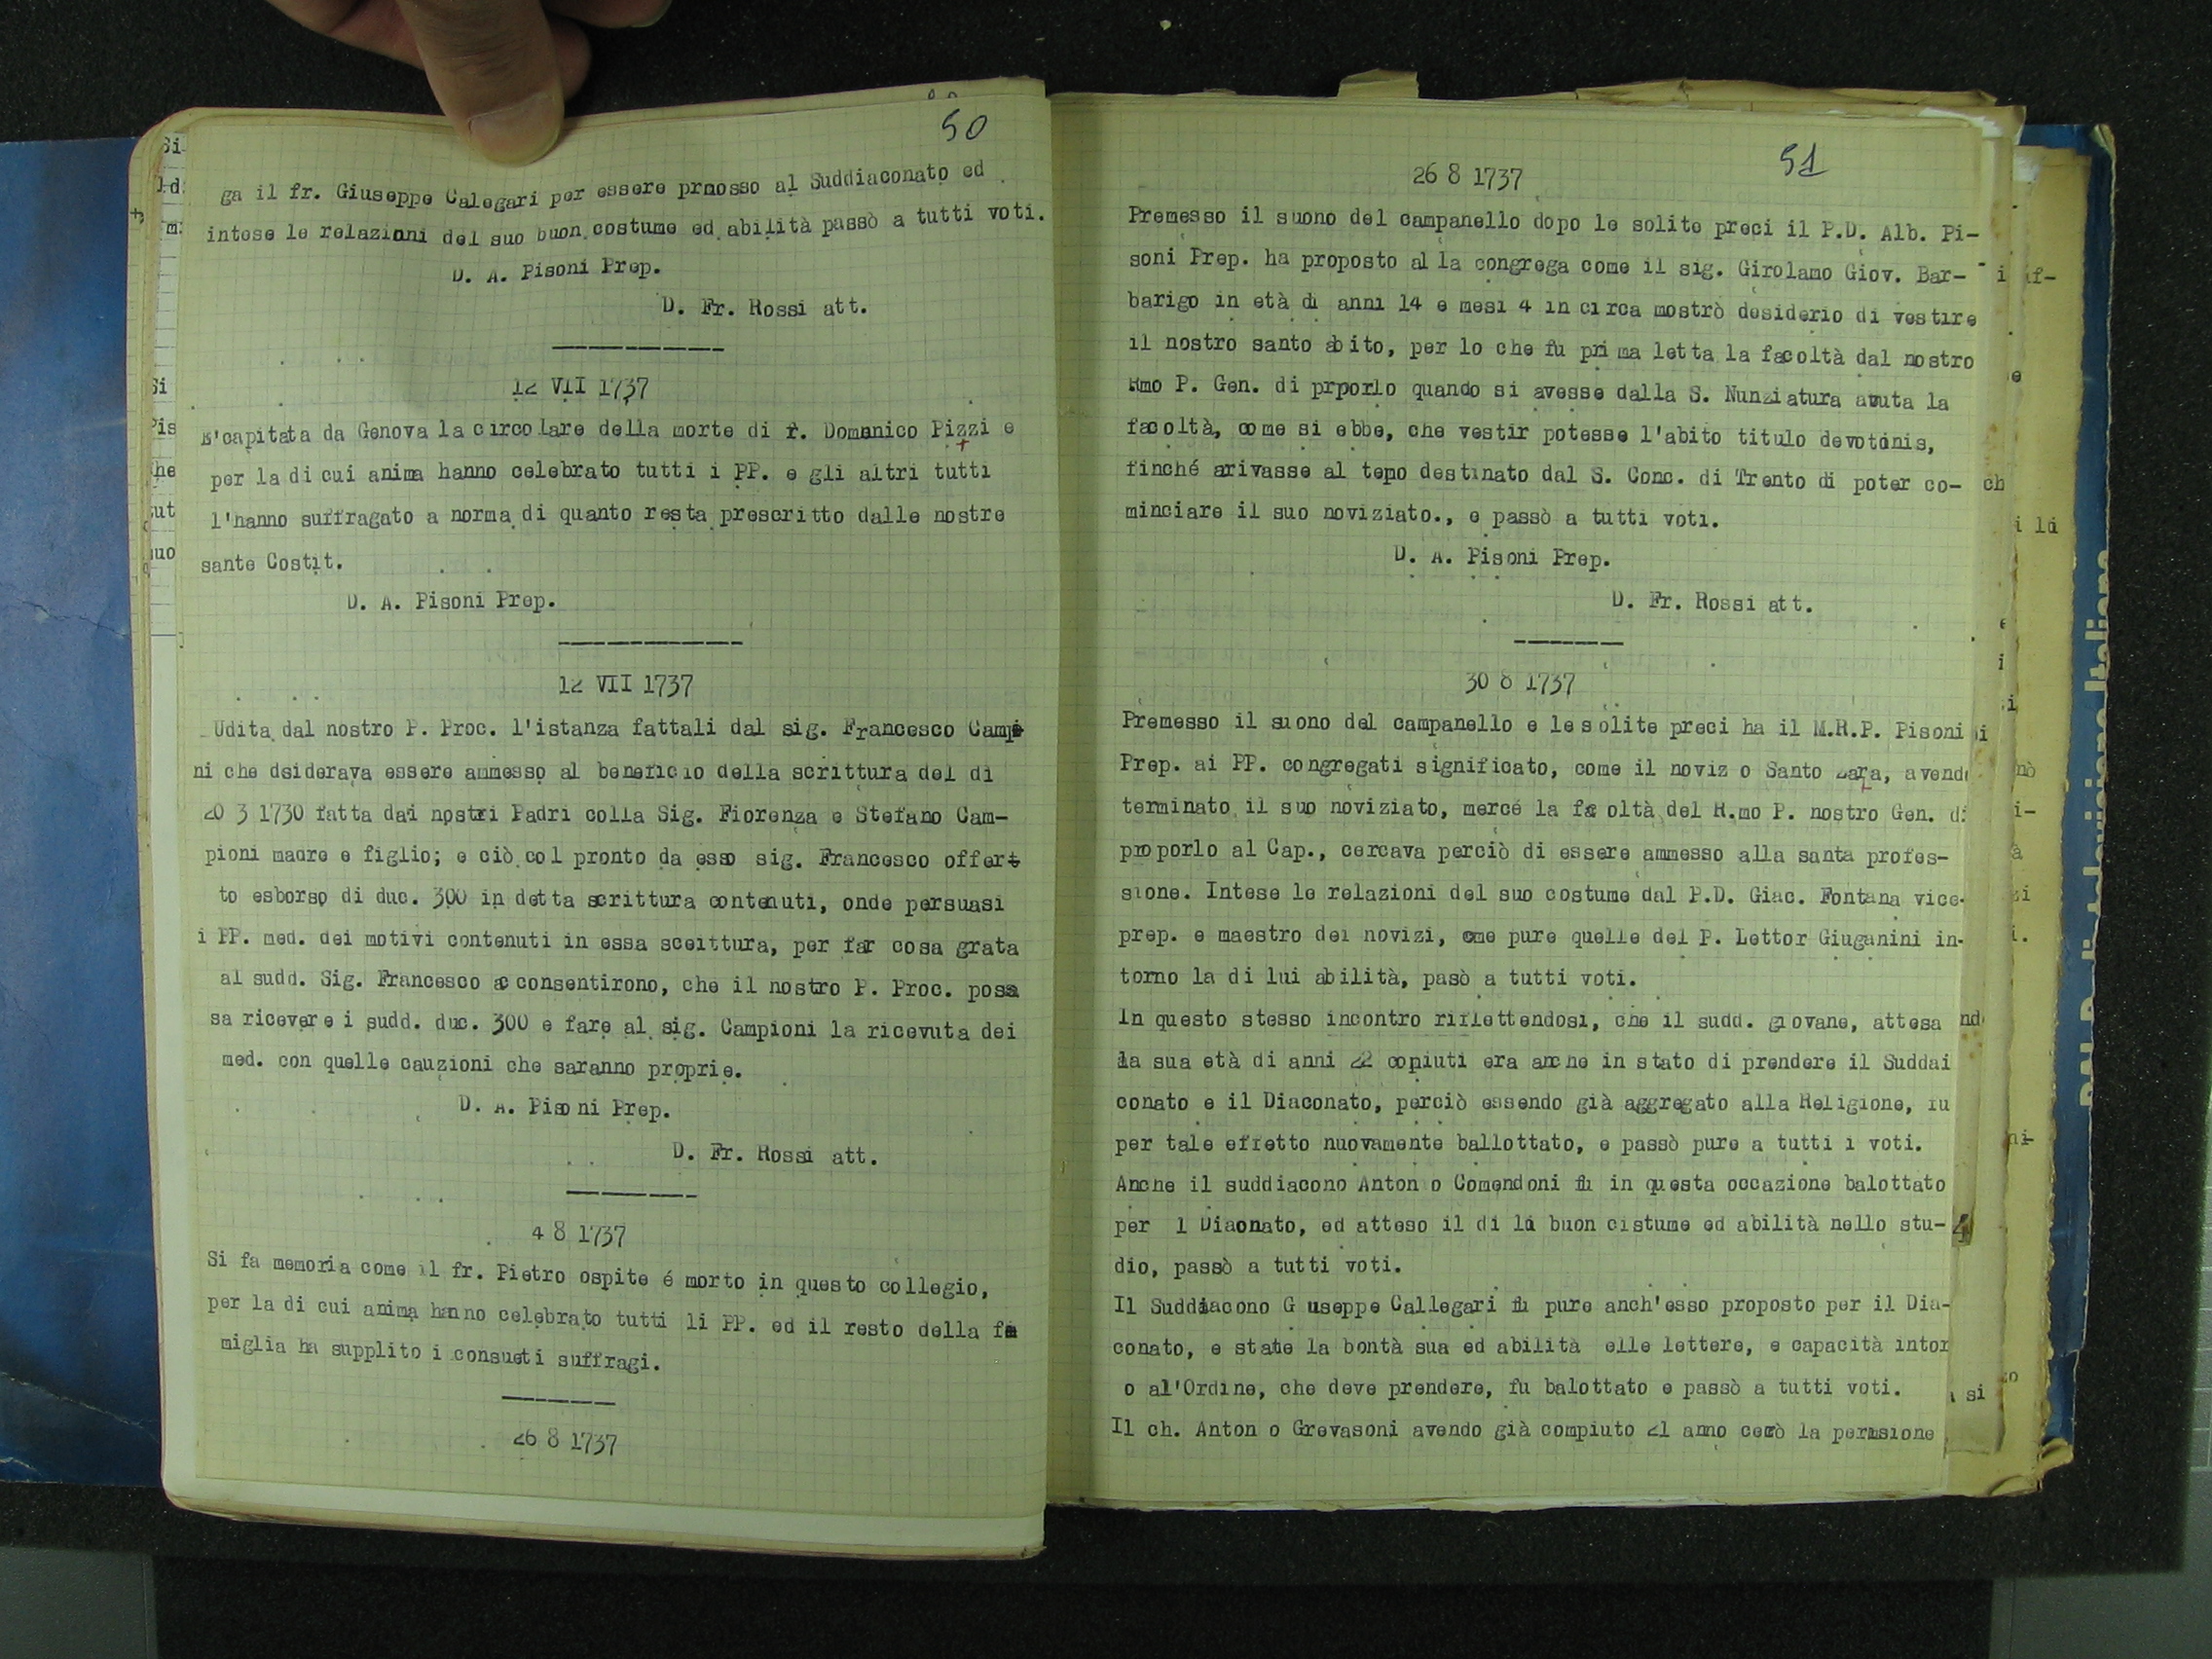 50
ga il fr. Giuseppe Calegari per essere prmosso al Suddiaconato ed
intese le relazioni del suo buon costume ed abilità passò a tutti voti.
D. A. Pisoni Prep.
D. Fr. Rossi att.
12 VII 1737
E'capitata da Genova la circolare della morte di f. Domenico Pizzi e
per la di cui anima hanno celebrato tutti i PP. e gli altri tutti
l'hanno suffragato a norma di quanto resta prescritto dalle nostre
sante Costit.
D. A. Pisoni Prep.
12 VII 1737
Udita dal nostro P. Proc. l'istanza fattali dal sig. Francesco Campi
ni che dsiderava essere ammesso al beneficio della scrittura del dì
20 3 1730 fatta dai nostri Padri colla Sig. Fiorenza e Stefano Cam-
pioni madre e figlio; e ciò col pronto da esso sig. Francesco offert
to esborso di duc. 300 in detta scrittura contenuti, onde persuasi
i PP. med. dei motivi contenuti in essa sceittura, per far cosa grata
al sudd. Sig. Francesco acconsentirono, che il nostro P. Proc. posa
sa ricevere i sudd. duc. 300 e fare al sig. Campioni la ricevuta dei
med. con quelle cauzioni che saranno proprie.
D. A. Pisoni Prep.
D. Fr. Rossi att.
4 8 1737
Si fa memoria come il fr. Pietro ospite é morto in questo collegio,
per la di cui anima hanno celebrato tutti li PP. ed il resto della fa
miglia ha supplito i consueti suffragi.
26 8 1737
51
26 8 1737
Premesso il suono del campanello dopo le solite preci il P.D. Alb. Pi-
soni Prep. ha proposto alla congrega come il sig. Girolamo Giov. Bar-
barigo in età di anni 14 e mesi 4 in circa mostrò desiderio di vestire
il nostro santo abito, per lo che fu prima letta la facoltà dal nostro
Rmo P. Gen. di prporlo quando si avesse dalla S. Nunziatura avuta la
facoltà, come si ebbe, che vestir potesse l'abito titulo devotónis,
finché arivasse al tepo destinato dal S. Conc. di Trento di poter co-
minciare il suo noviziato., e passò a tutti voti.
D. A. Pisoni Prep.
D. Fr. Rossi att.
30 8 1737
Premesso il suono del campanello e le solite preci ha il M.R.P. Pisoni
Prep. ai PP. congregati significato, come il noviz o Santo Zara, avend
terminato il suo noviziato, mercé la facoltà del R.mo P. nostro Gen. di
proporlo al Cap., cercava perciò di essere ammesso alla santa profes-
sione. Intese le relazioni del suo costume dal P.D. Giac. Fontana vice-
prep. e maestro dei novizi, ome pure quelle del P. Lettor Giuganini in-
torno la di lui abilità, pasò a tutti voti.
In questo stesso incontro riflettendosi, che il sudd. giovane, attesa
la sua età di anni 22 copiuti era anche in stato di prendere il Suddai
conato e il Diaconato, perciò essendo già aggregato alla Religione, fu
per tale effetto nuovamente ballottato, e passò pure a tutti i voti.
Anche il suddiacono Anton o Comendoni fu in questa occazione balottato
per l Diaonato, ed atteso il di lui buon cistume ed abilità nello stu-
dio, passò a tutti voti.
Il Suddiacono G useppe Callegari fu pure anch'esso proposto per il Dia-
conato, e state la bontà sua ed abilità elle lettere, e capacità intor
o al'Ordine, che deve prendere, fu balottato e passò a tutti voti.
Il ch. Anton o Grevasoni avendo già compiuto 21 anno cercò la permsione